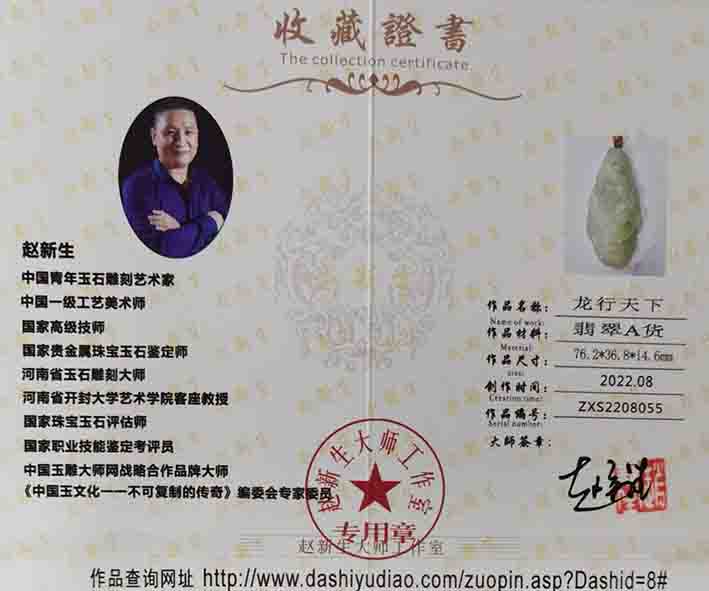 收藏證書
The collection certificate.
赵新生
中国青年玉石雕刻艺术家
中国一级工艺美术师
国家高级技师
国家贵金属珠宝玉石鉴定师
河南省玉石雕刻大师
河南省开封大学艺术学院客座教授
国家珠宝玉石评估师
国家职业技能鉴定考评员
中国玉雕大师网战略合作品牌大师
《中国玉文化一一不可复制的传奇》编委会专家委员
作品名称: 龙行天下
Name of work:
作品材料: 翡翠A货
Material:
作品尺寸: 76.2*36.8*14.6mm
area:
创作时间: 2022.08
Creation time:
作品编号: ZXS2208055
Serial number:
大师签章:
赵新生大师工作室
专用章
赵新生大师工作室
作品查询网址 http://www.dashiyudiao.com/zuopin.asp?Dashid=8#